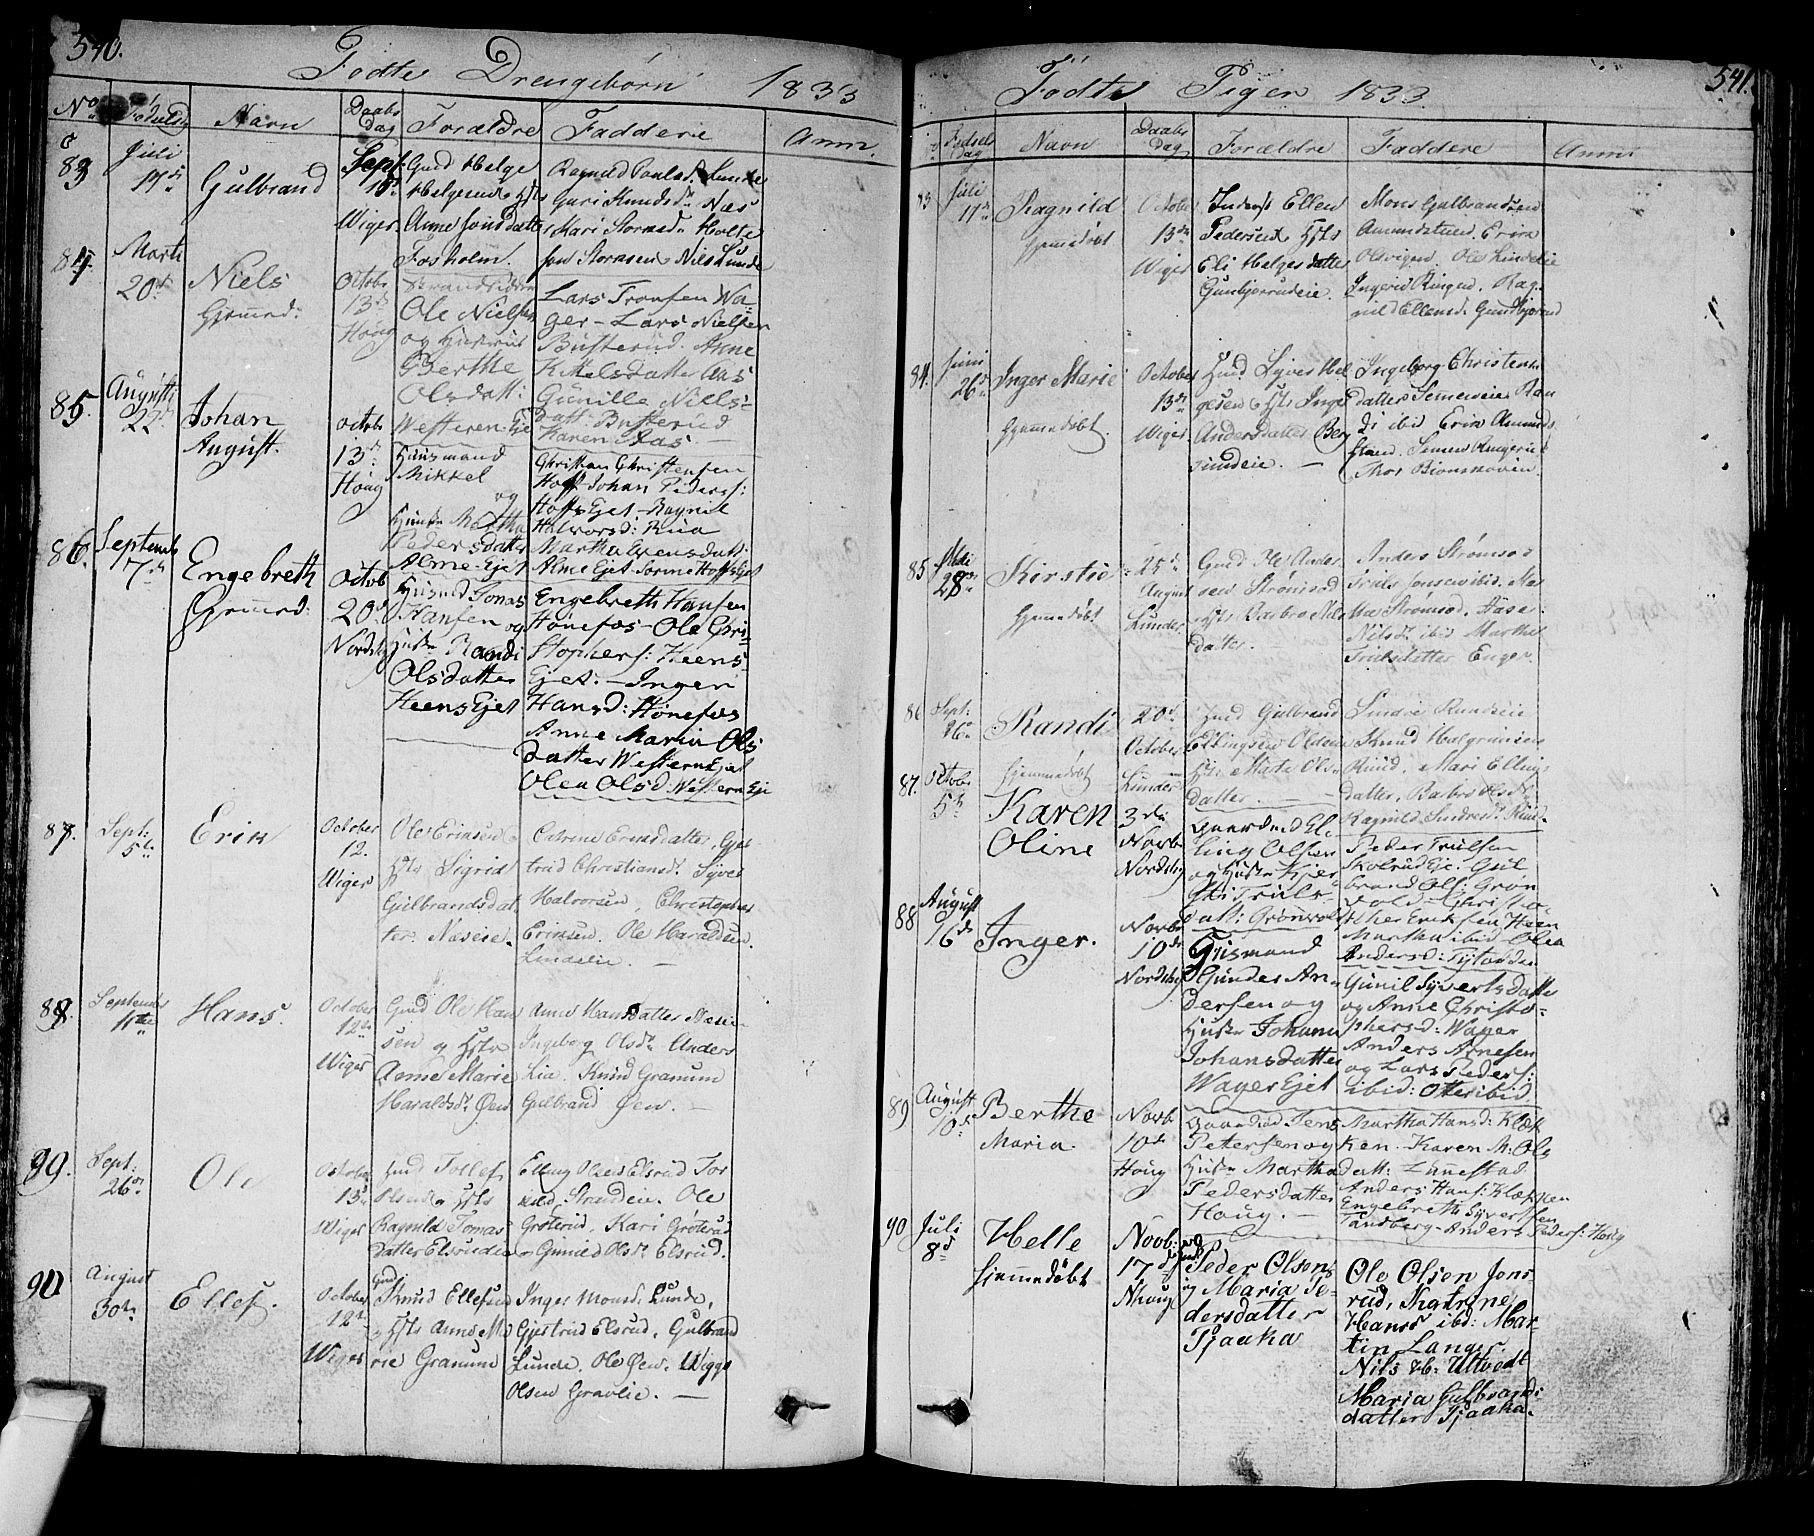 540.
Födte Drengebörn 1833
No Födselsdag Navn Daabs Dag Forældre Faddere Anm.
83 Juli 17de Gulbrand Sept. 15de Wiger
Gmd Helge
Helgesen & Hstr
Anne Jonsdatter
Fosholm.
Ragnild Paulsd. Lunde
Guri Knudsdr Næs
Mari Stormsdr Holte
Nils Lunde
84. Marti 20de Niels Hjemmed: Octobr 13de Houg
Ole Nielsen
og Hustrue
Berthe
Olsdatt:
Westeren Eje
Lars Tronsen Wa-
ger - Lars Nielsen
Busterud. Anne
Kittelsdatter Aas
Gunille Niels-
datt: Busterud
Karen Aas -
85. Augusti 22d Johan August. Octobr 13de Houg
Huusmand
Mikkel
og
Hustr Martha
Pedersdatter
Alme-Ejet
Christian Christensen
Hoff Johan Peders:
Hoffs Ejet - Ragnil
Halvorsd: Rua
Martha Evensdatt.
Alme Ejet - Sorine Hoffs Ejet
86. Septembr 17de Engebreth Hjemmed: Octob 20de Nordrhg
Husmd Jonas
Hansen og
Hustr Randi
Olsdatter
Heens Ejet
Engebreth Hansen
Hönefos - Ole Chri-
stophers: Heens
Ejet. - Inger
Hansd: Hönefos
Anne Maria Ols
datter Western Ejet
Olea Olsd: Western Eje
87. Sept: 5te Erik October 12. Wiger
Ole Erensen &
Hstr Sigrid
Gulbrandsdat
ter. Næseie.
Cathrine Erensdatter, Gjer-
trud Christiansdr Syver
Halvorsen, Christopher
Erensen. Ole Haraldsen
Lundeie. -
88. September 11te Hans. October 12te Wiger
Gmd Ole Han
sen og Hstr
Anne Marie
Haraldsdr Øen
Anne Hansdatter Næseie
Ingeborg Olsdr Anders
Lia. Knud Granum
Gulbrand Øen. -
99. Sept: 26de Ole October 13de Wiger
Hmd Tollef
Olsen & Hstr
Ragnild Jonas
datter Elsrudeie
Elling Olsen Elsrud Tor
kild Strandeie. Ole
Gröterud, Kari Gröterud
Gunild Olsdr Elsrud.
90 August 30te Ellef. October 12te Wiger
Gmd
Knud Ellefsen
& Hstr Anne Ma
rie Granum
Inger Monsd. Lunde,
Gjertrud Elsrud, Gulbrand
Lunde. Ole Øen. Wigge
Olsen Gravlie. -
541.
Födte Piger 1833
Födsels Dag Navn Daabs Dag Forældre Faddere Anm:
83 Juli 11te Ragnild Hjemmedöbt October 13de Wiger
Inderst Ellen
Pedersen & Hstr
Eli Helgesdatter
Gunbjørrudeie.
Mons Gulbrandsen
Amundstuen. Erik
Olsvigen, Ole Lindelie
Ingerid Ringerud, Rag-
nild Ellensd. Gundbjørrud
84. Juni 26de Inger Marie Hjemmedöbt. October 13de Wiger
Hmd. Syver Hel
gesen & Hstr Inger
Andersdatter Berg
sundeie. -
Ingeborg Christens
datter Semmeneie. Ran
di ibid Erik Amunds
Thor Bjonskoven.
85 28de Kirstie Hjemmedöbt 25de August Lunder
Gmd Ole Ander
sen Strömsod
Hstr Barbro Nils
datter.
Anders Strömsod
Truls Jonsen ibid. Mar
tha Strömsod. Aase
Nilsdr ibid Marthe
datter Enger.
86 Sept: 26de Randi Hjemmedöbt 20de October Lunder
Hmd Gulbrand
Ellingsen Olden
Hstr Mate Ols-
datter. -
Sindre Rundeie
Knud
Ruud, Mari Ellings
datter, Barbro
Ragnild Sindresdr Ruud.
87. Octobr 5te Karen Oline 3die Novbr Nordrhg
Gaardmd El-
ling Olsen
og Hustr Kjer
sti Truls-
datt: Grönvold
Peder Trulsen
Skolrud Eje. Gul
brand Ols: Grön
vold. Christo-
pher Eriksen Heen
Martha ibid Olea
Andersd:
88 August 16de Inger. Novbr 10de Nordrhg
Huusmand
Gunder An-
dersen og
Hustr Johanne
Johansdatter
Wager Ejet
Gunil Syverts datter
og Anne Christo-
phersd: Wager
Anders Arnesen
og Lars Peders:
ibid: Otter ibid
89 August 10de Berthe Maria. Novbr 10de Houg
Gaardmd Jens
Petersen og
Hustr Martha
Pedersdatter
Houg. -
Martha Hansd: Klæk
ken. Karen M: Ols
datt: Lunestad
Anders Hans: Klækken
Engebreth Syversen
Tandberg - Anders Peders: Houg
90 Juli 8de Helle Hjemmedöbt Novbr: 17de Nhoug
Peder Olsen
og Maria Pe-
dersdatter
Tjaaka
Ole Olsen Jons
rud, Kathrine
Hans ibd: Mar-
tin Langer.
Nils H: Utvedt
Maria Gulbrands
datter Tjaaka.